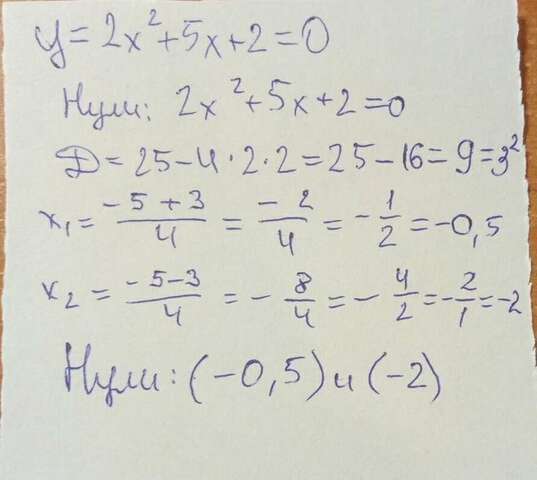 y = 2x² + 5x + 2 = 0
Нули: 2x² + 5x + 2 = 0
D = 25 - 4 · 2 · 2 = 25 - 16 = 9 = 3²
x₁ = (-5 + 3)/4 = (-2)/4 = -1/2 = -0,5
x₂ = (-5 - 3)/4 = -8/4 = -4/2 = -2/1 = -2
Нули: (-0,5) и (-2)